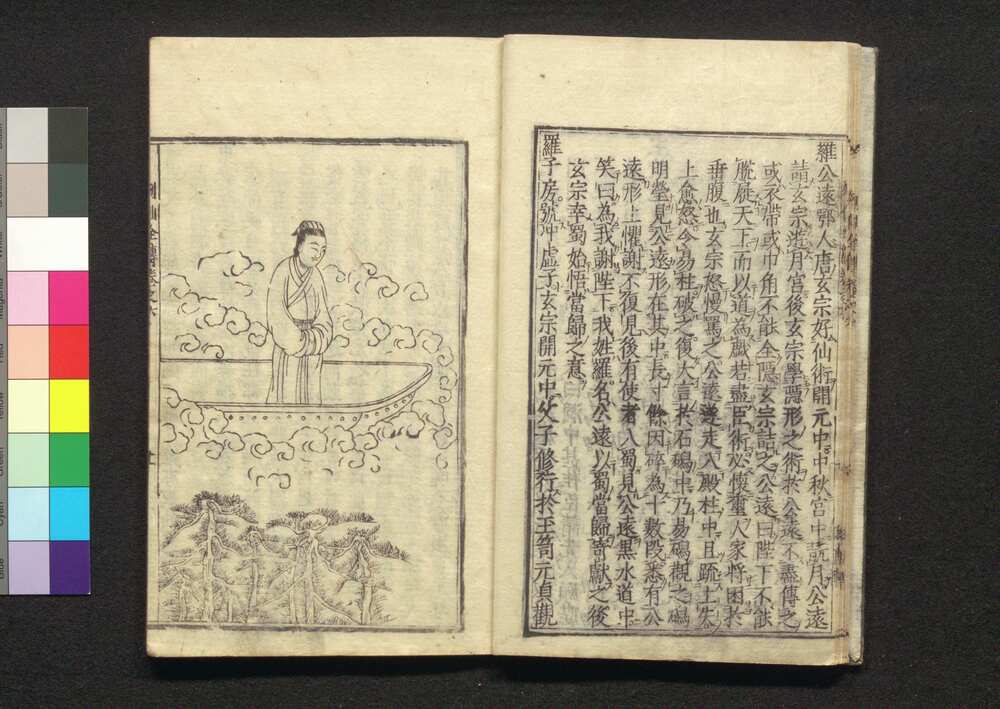 羅公遠鄂人唐玄宗好仙術開元中中秋宮中翫月公遠
請玄宗遊月宮後玄宗學隱形之術於公遠不盡傳之
或衣帶或巾角不能全隱玄宗詰之公遠曰陛下不能
脫屣天下而以道為戲若盡臣術必懷璽入人家將困於
玄宗怒慢罵之公遠遂走入殿柱中且疏上失
上愈怒令易柱破之復大言於石磶中乃易磶觀之磶
明瑩見公遠形在其中長寸餘因碎為十數段悉有公
遠形上懼謝不復見後有使者入蜀見公遠黑水道中
笑曰為我謝陛下我姓羅名公遠以蜀當歸寄獻之後
玄宗幸蜀始悟當歸之意
羅子房號冲虛子玄宗開元中父子修行於玉笥元貞觀
列仙全傳卷之六